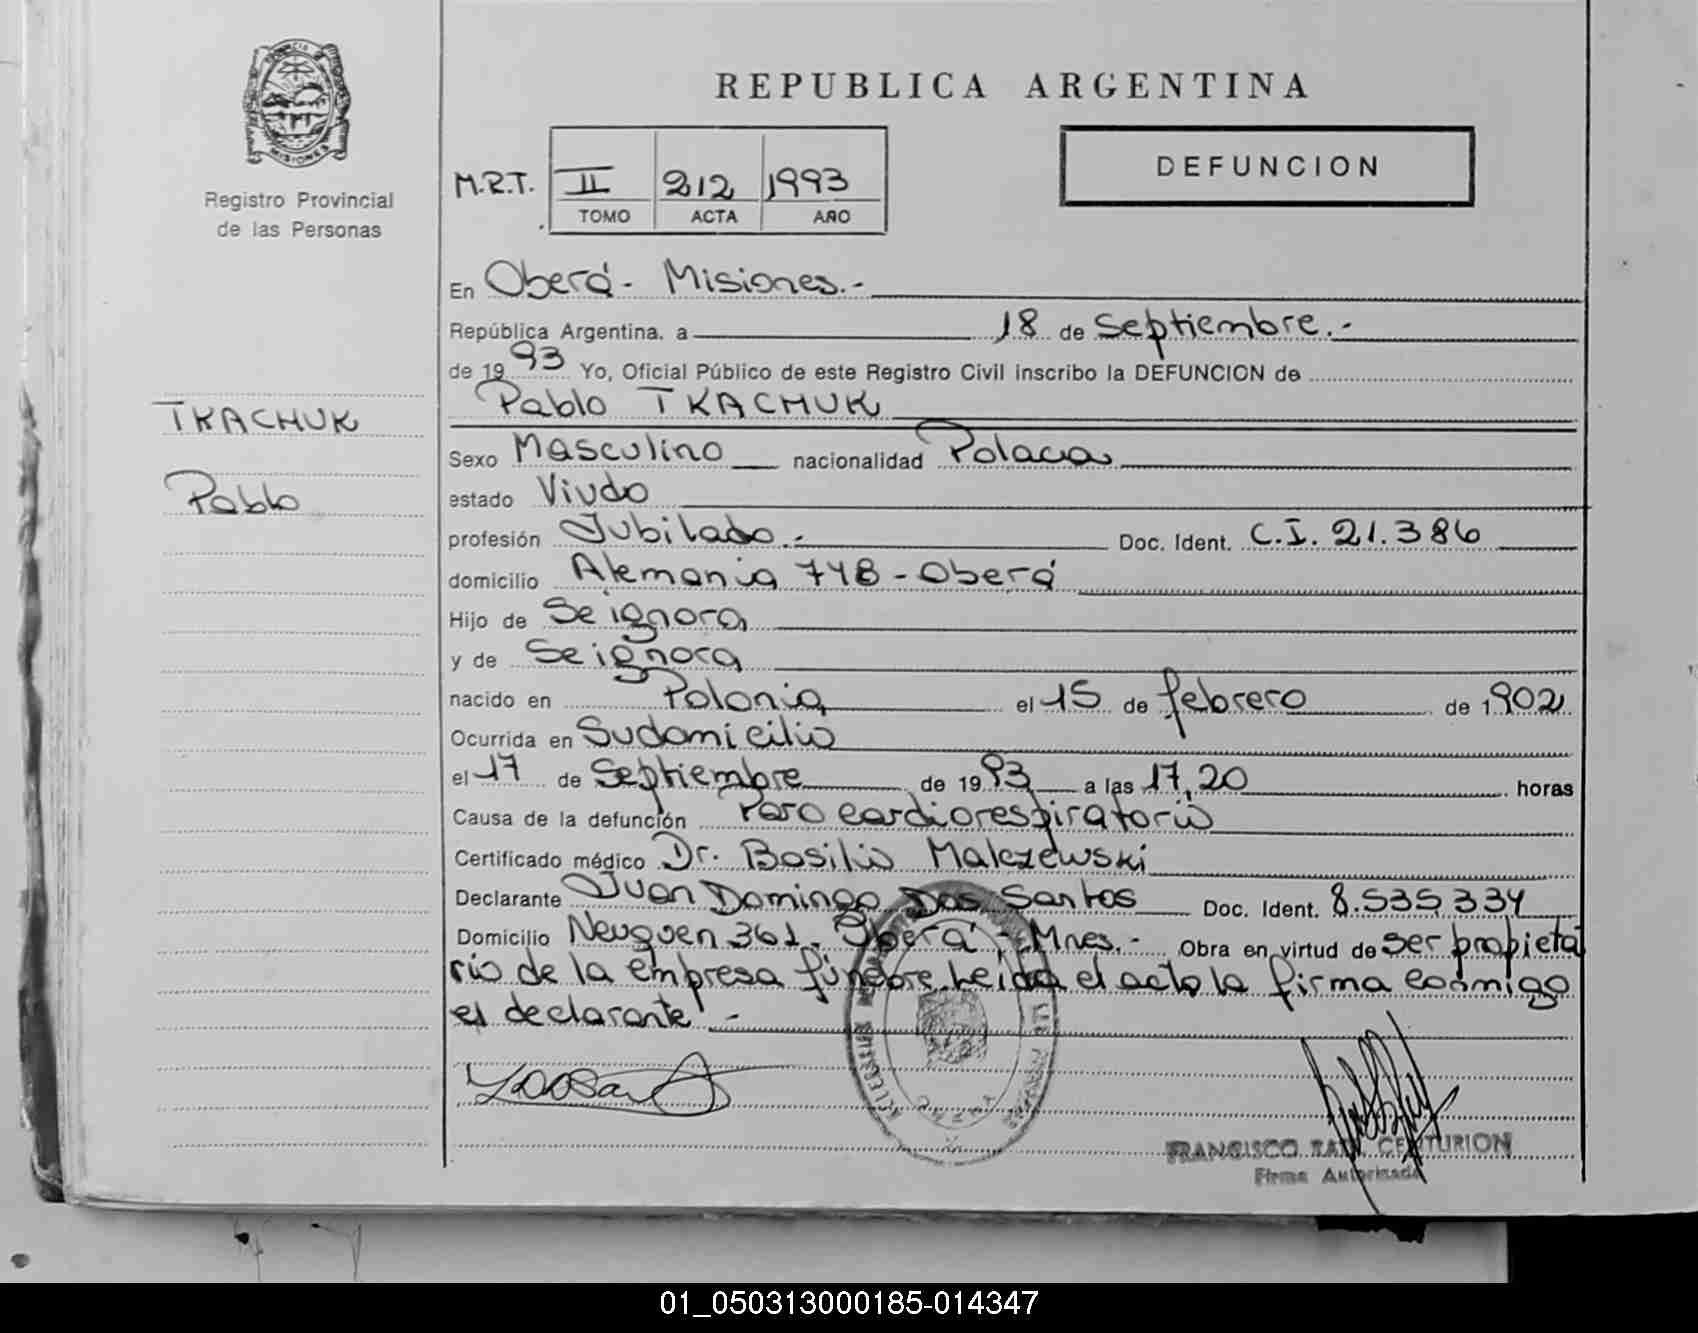 PROVINCIA D
MISIONES
Registro Provincial
de las Personas
TKACHUK
Pablo
REPUBLICA ARGENTINA
M.R.T. II 212 1993
TOMO ACTA AÑO
DEFUNCION
En Oberá - Misiones.-
República Argentina, a 18 de Septiembre.-
de 1993 Yo, Oficial Público de este Registro Civil inscribo la DEFUNCION de
Pablo TKACHUK
Sexo Masculino nacionalidad Polaca
estado Viudo
profesión Jubilado.- Doc. Ident. C.I. 21.386
domicilio Alemania 748 - Oberá
Hijo de Se ignora
y de Se ignora
nacido en Polonia el 15 de febrero de 1.902
Ocurrida en Su domicilio
el 17 de Septiembre de 1993 a las 17,20 horas
Causa de la defunción Paro cardiorespiratorio
Certificado médico Dr. Basilio Malczewski
Declarante Juan Domingo Dos Santos Doc. Ident. 8.535.334
Domicilio Neuquen 361. Oberá - Mnes.- Obra en virtud de ser propieta
rio de la empresa fúnebre. Leida el acta la firma conmigo
el declarante -
FRANCISCO RAUL CENTURION
Firma Autorizada
01_050313000185-014347